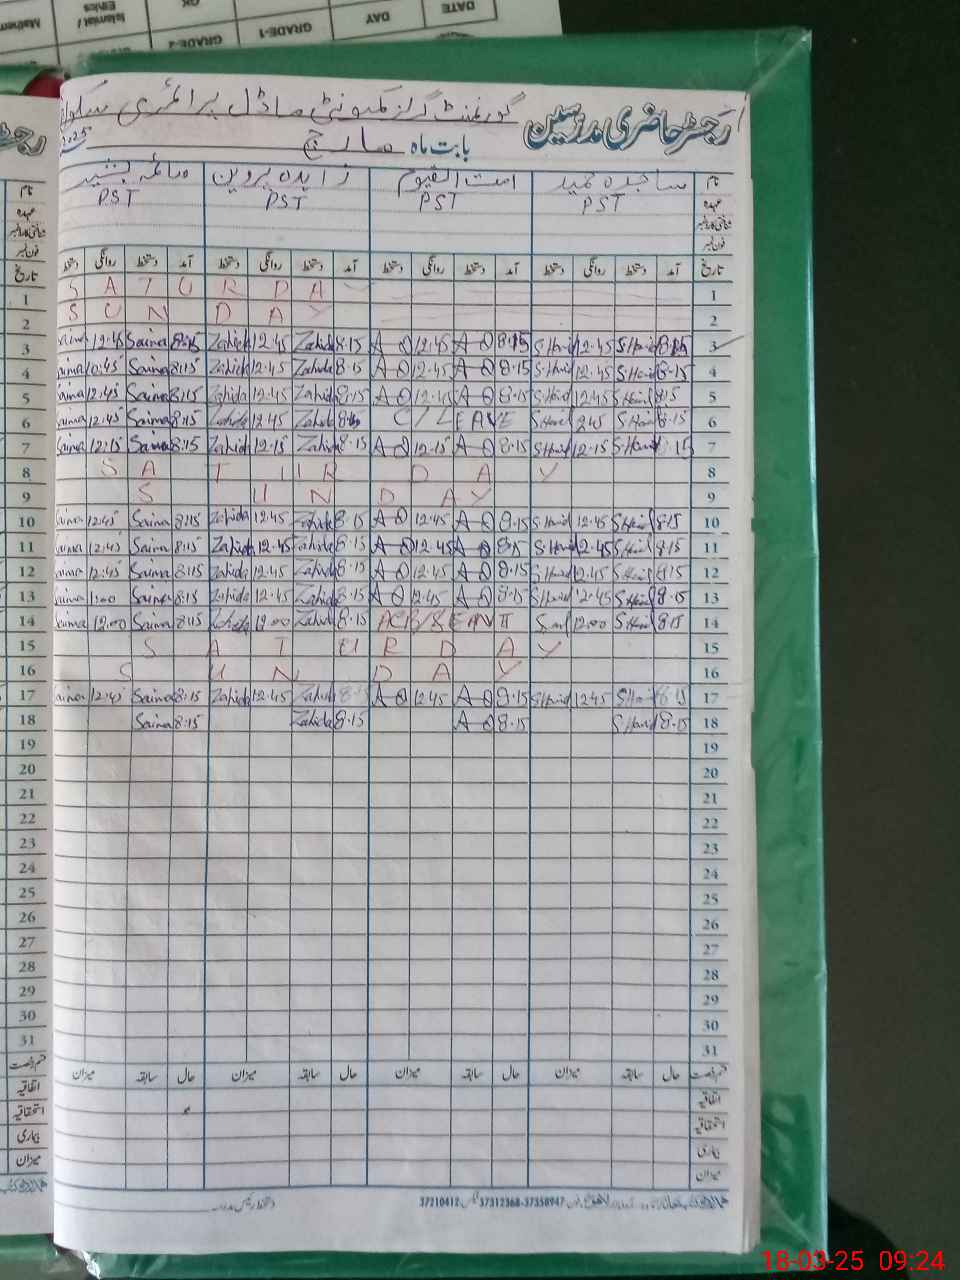 DATE
DAY
GRADE-1
GRADE-2
GK
Islamiat / Ethics
رجسٹر حاضری مدرسین گورنمنٹ گرلز کمیونٹی ماڈل پرائمری سکول
بابت ماہ مارچ 2025
نام ساجدہ حمید امت القیوم زاہدہ پروین صائمہ بشیر
عہدہ PST PST PST PST
شناختی کارڈ نمبر
فون نمبر
تاریخ آمد دستخط روانگی دستخط آمد دستخط روانگی دستخط آمد دستخط روانگی دستخط آمد دستخط روانگی دستخط
1 SATURDAY 1
2 SUNDAY 2
3 12:45 Saima 8:15 Zahida 12.45 Zahida 8.15 A Q 12.45 A Q 8.15 S.Hamid 12.45 S.Hamid 8.15 3
4 Saima 10:45 Saima 8:15 Zahida 12.45 Zahida 8.15 A Q 12.45 A Q 8.15 S.Hamid 12.45 S.Hamid 8.15 4
5 Saima 12:45 Saima 8:15 Zahida 12.45 Zahida 8.15 A Q 12.45 A Q 8.15 S.Hamid 12.45 S.Hamid 8.15 5
6 Saima 12:45 Saima 8:15 Zahida 12.45 Zahida C/LEAVE S.Hamid 2.45 S.Hamid 8.15 6
7 Saima 12:15 Saima 8:15 Zahida 12.15 Zahida 8.15 A Q 12.15 A Q 8.15 S.Hamid 12.15 S.Hamid 8.15 7
8 SATURDAY 8
9 SUNDAY 9
10 Saima 12:45 Saima 8:15 Zahida 12.45 Zahida 8.15 A Q 12.45 A Q 8.15 S.Hamid 12.45 S.Hamid 8.15 10
11 Saima 12:45 Saima 8:15 Zahida 12.45 Zahida 8.15 A Q 12.45 A Q 8.15 S.Hamid 12.45 S.Hamid 8.15 11
12 Saima 12:45 Saima 8:15 Zahida 12.45 Zahida 8.15 A Q 12.45 A Q 8.15 S.Hamid 12.45 S.Hamid 8.15 12
13 Saima 1:00 Saima 8:15 Zahida 12.45 Zahida 8.15 A Q 12.45 A Q 8.15 S.Hamid 12.45 S.Hamid 8.15 13
14 Saima 12:00 Saima 8:15 Zahida 12.00 Zahida 8.15 12.00 S.Hamid 8.15 14
15 SATURDAY 15
16 SUNDAY 16
17 Saima 12:45 Saima 8:15 Zahida 12.45 Zahida 8.15 A Q 12.45 A Q 8.15 S.Hamid 12.45 S.Hamid 8.15 17
18 Saima 8:15 Zahida 8.15 A Q 8.15 S.Hamid 8.15 18
19 19
20 20
21 21
22 22
23 23
24 24
25 25
26 26
27 27
28 28
29 29
30 30
31 31
قسم رخصت حال سابقہ میزان حال سابقہ میزان حال سابقہ میزان حال سابقہ میزان
اتفاقیہ
استحقاقیہ
بیماری
میزان
37210412 37312368-37358947
18-03-25 09:24